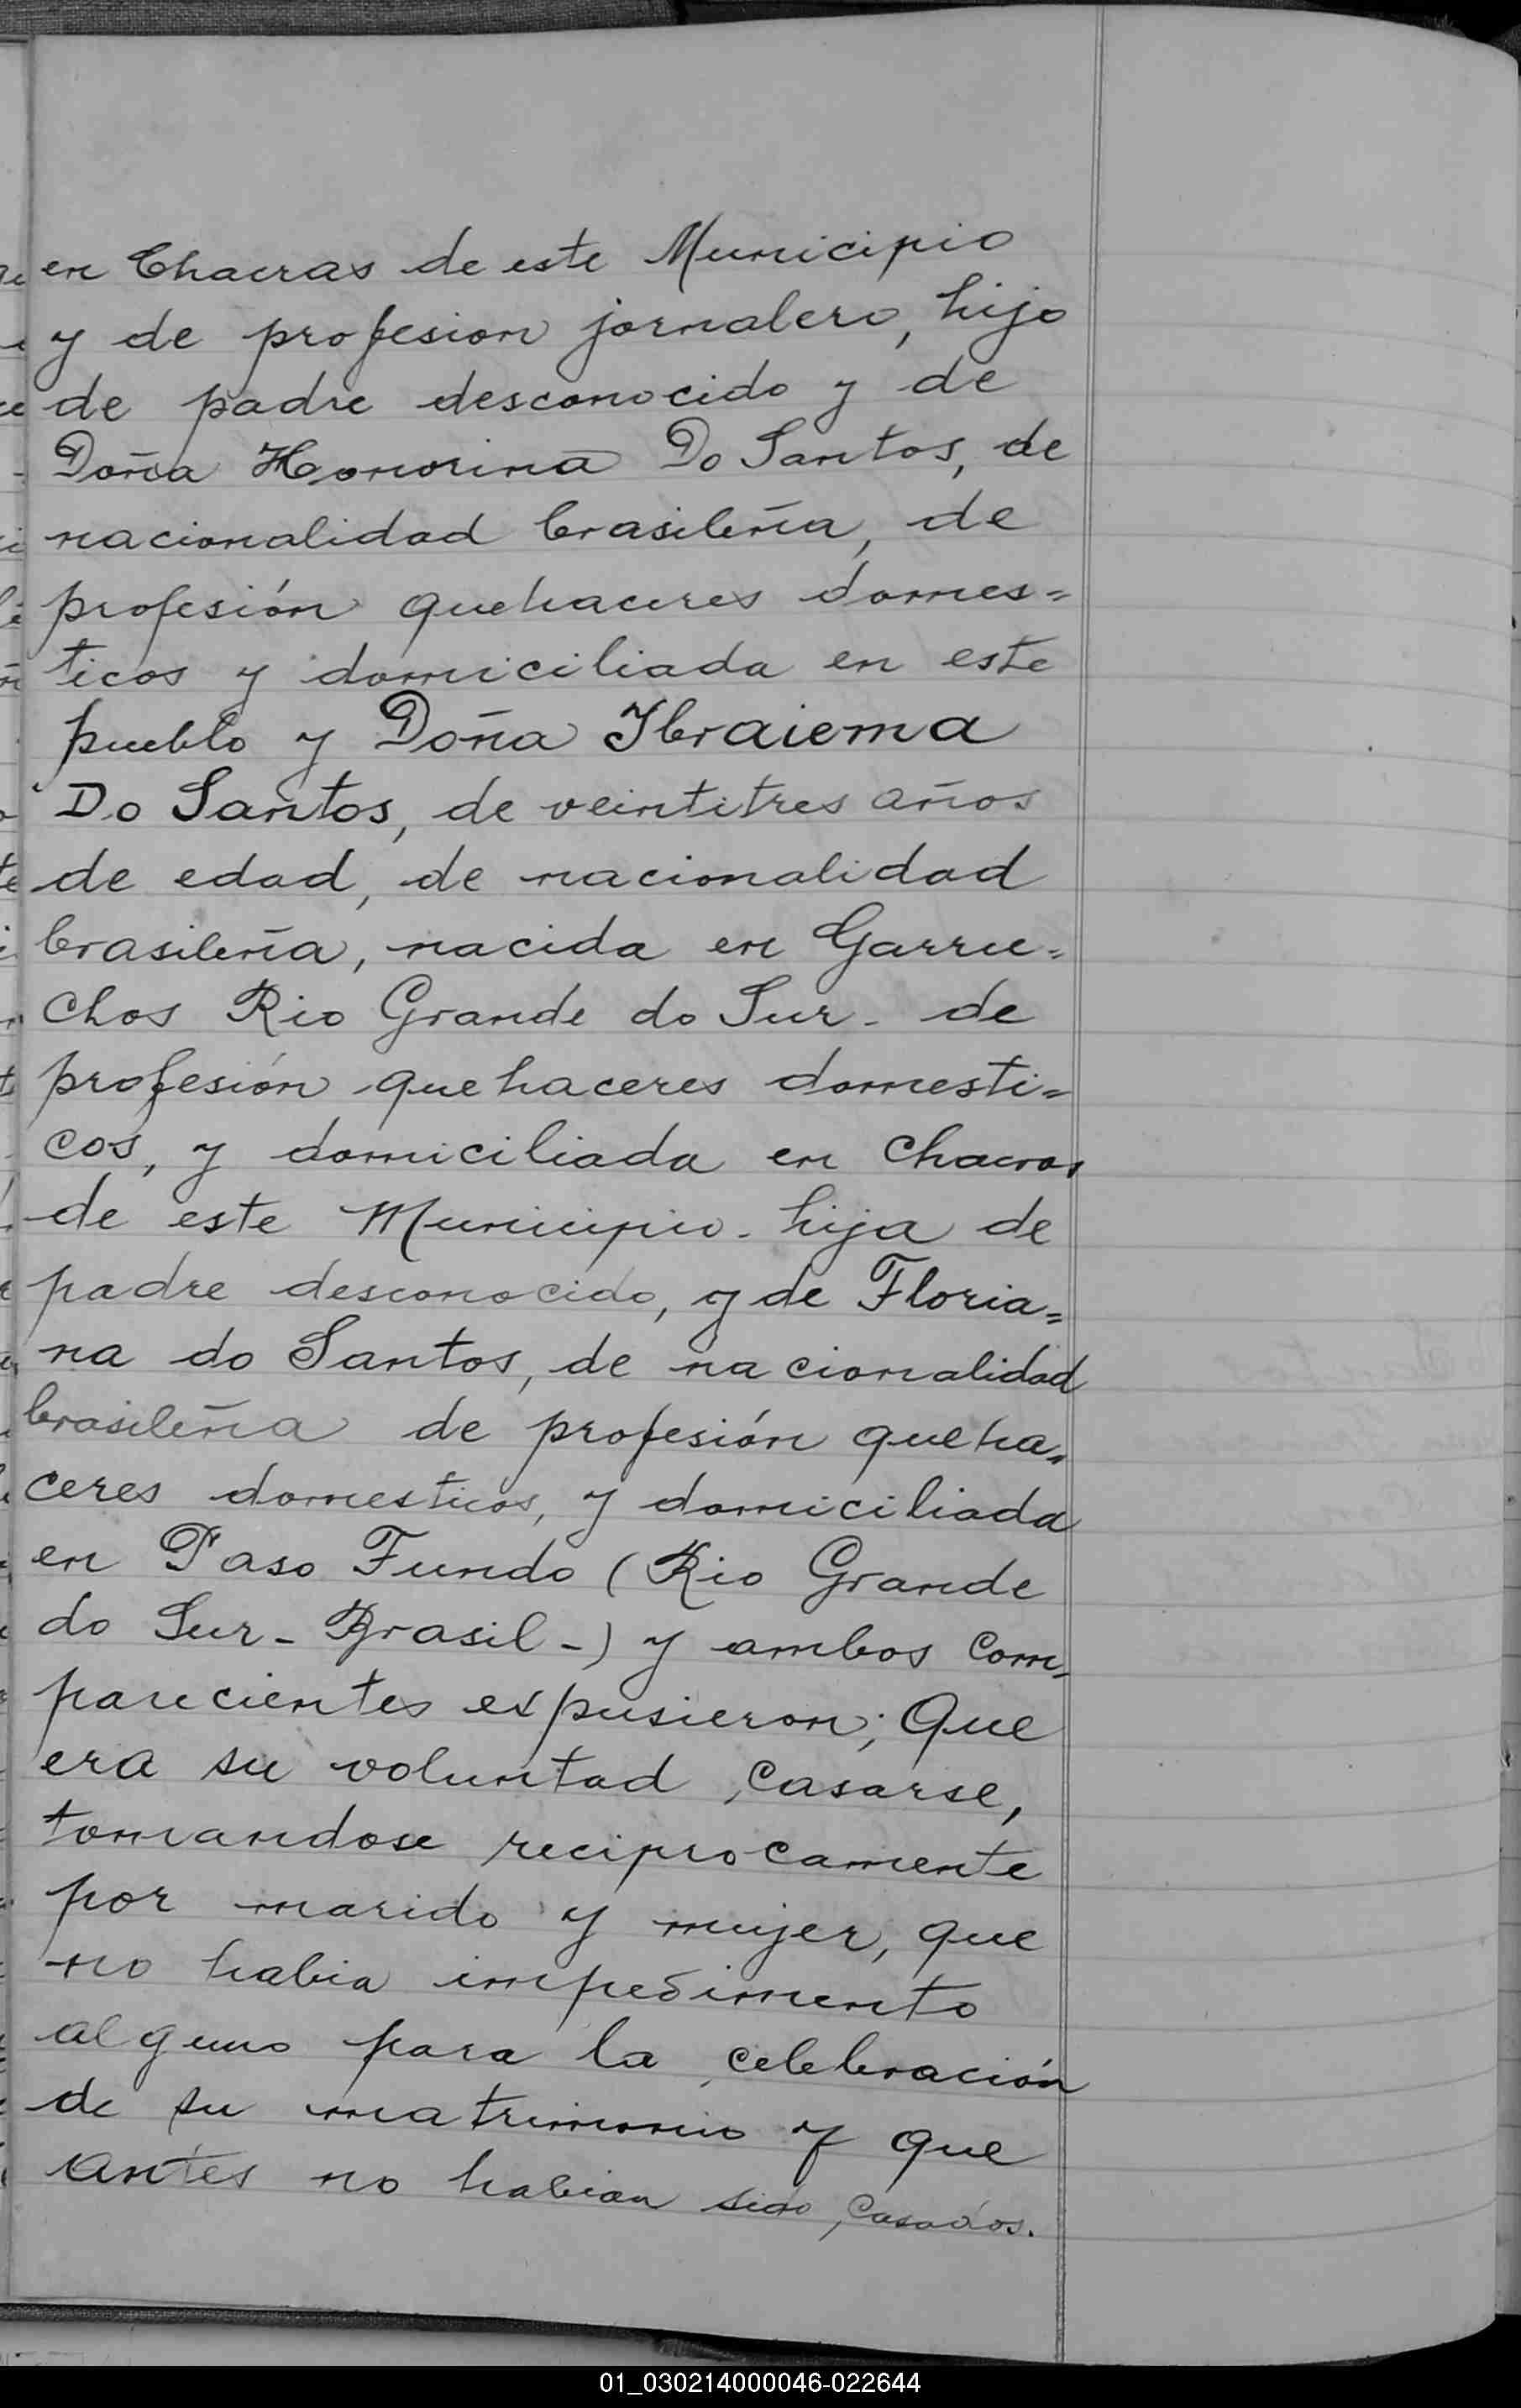 en Chacras de este Municipio
y de profesion jornalero, hijo
de padre desconocido y de
Doña Honorina Do Santos, de
nacionalidad brasileña, de
profesión quehaceres domes=
ticos y domiciliada en este
pueblo y Doña Ibraiema
Do Santos, de veintitres años
de edad, de nacionalidad
brasileña, nacida en Garru=
chos Rio Grande do Sur - de
profesión quehaceres domesti=
cos, y domiciliada en Chacras
de este Municipio - hija de
padre desconocido, y de Floria=
na do Santos, de nacionalidad
brasileña de profesión queha=
ceres domesticos, y domiciliada
en Paso Fundo (Rio Grande
do Sur - Brasil -) y ambos com=
parecientes expusieron; Que
era su voluntad casarse,
tomandose reciprocamente
por marido y mujer, que
no habia impedimento
alguno para la celebración
de su matrimonio y que
antes no habian sido casados.
01_030214000046-022644